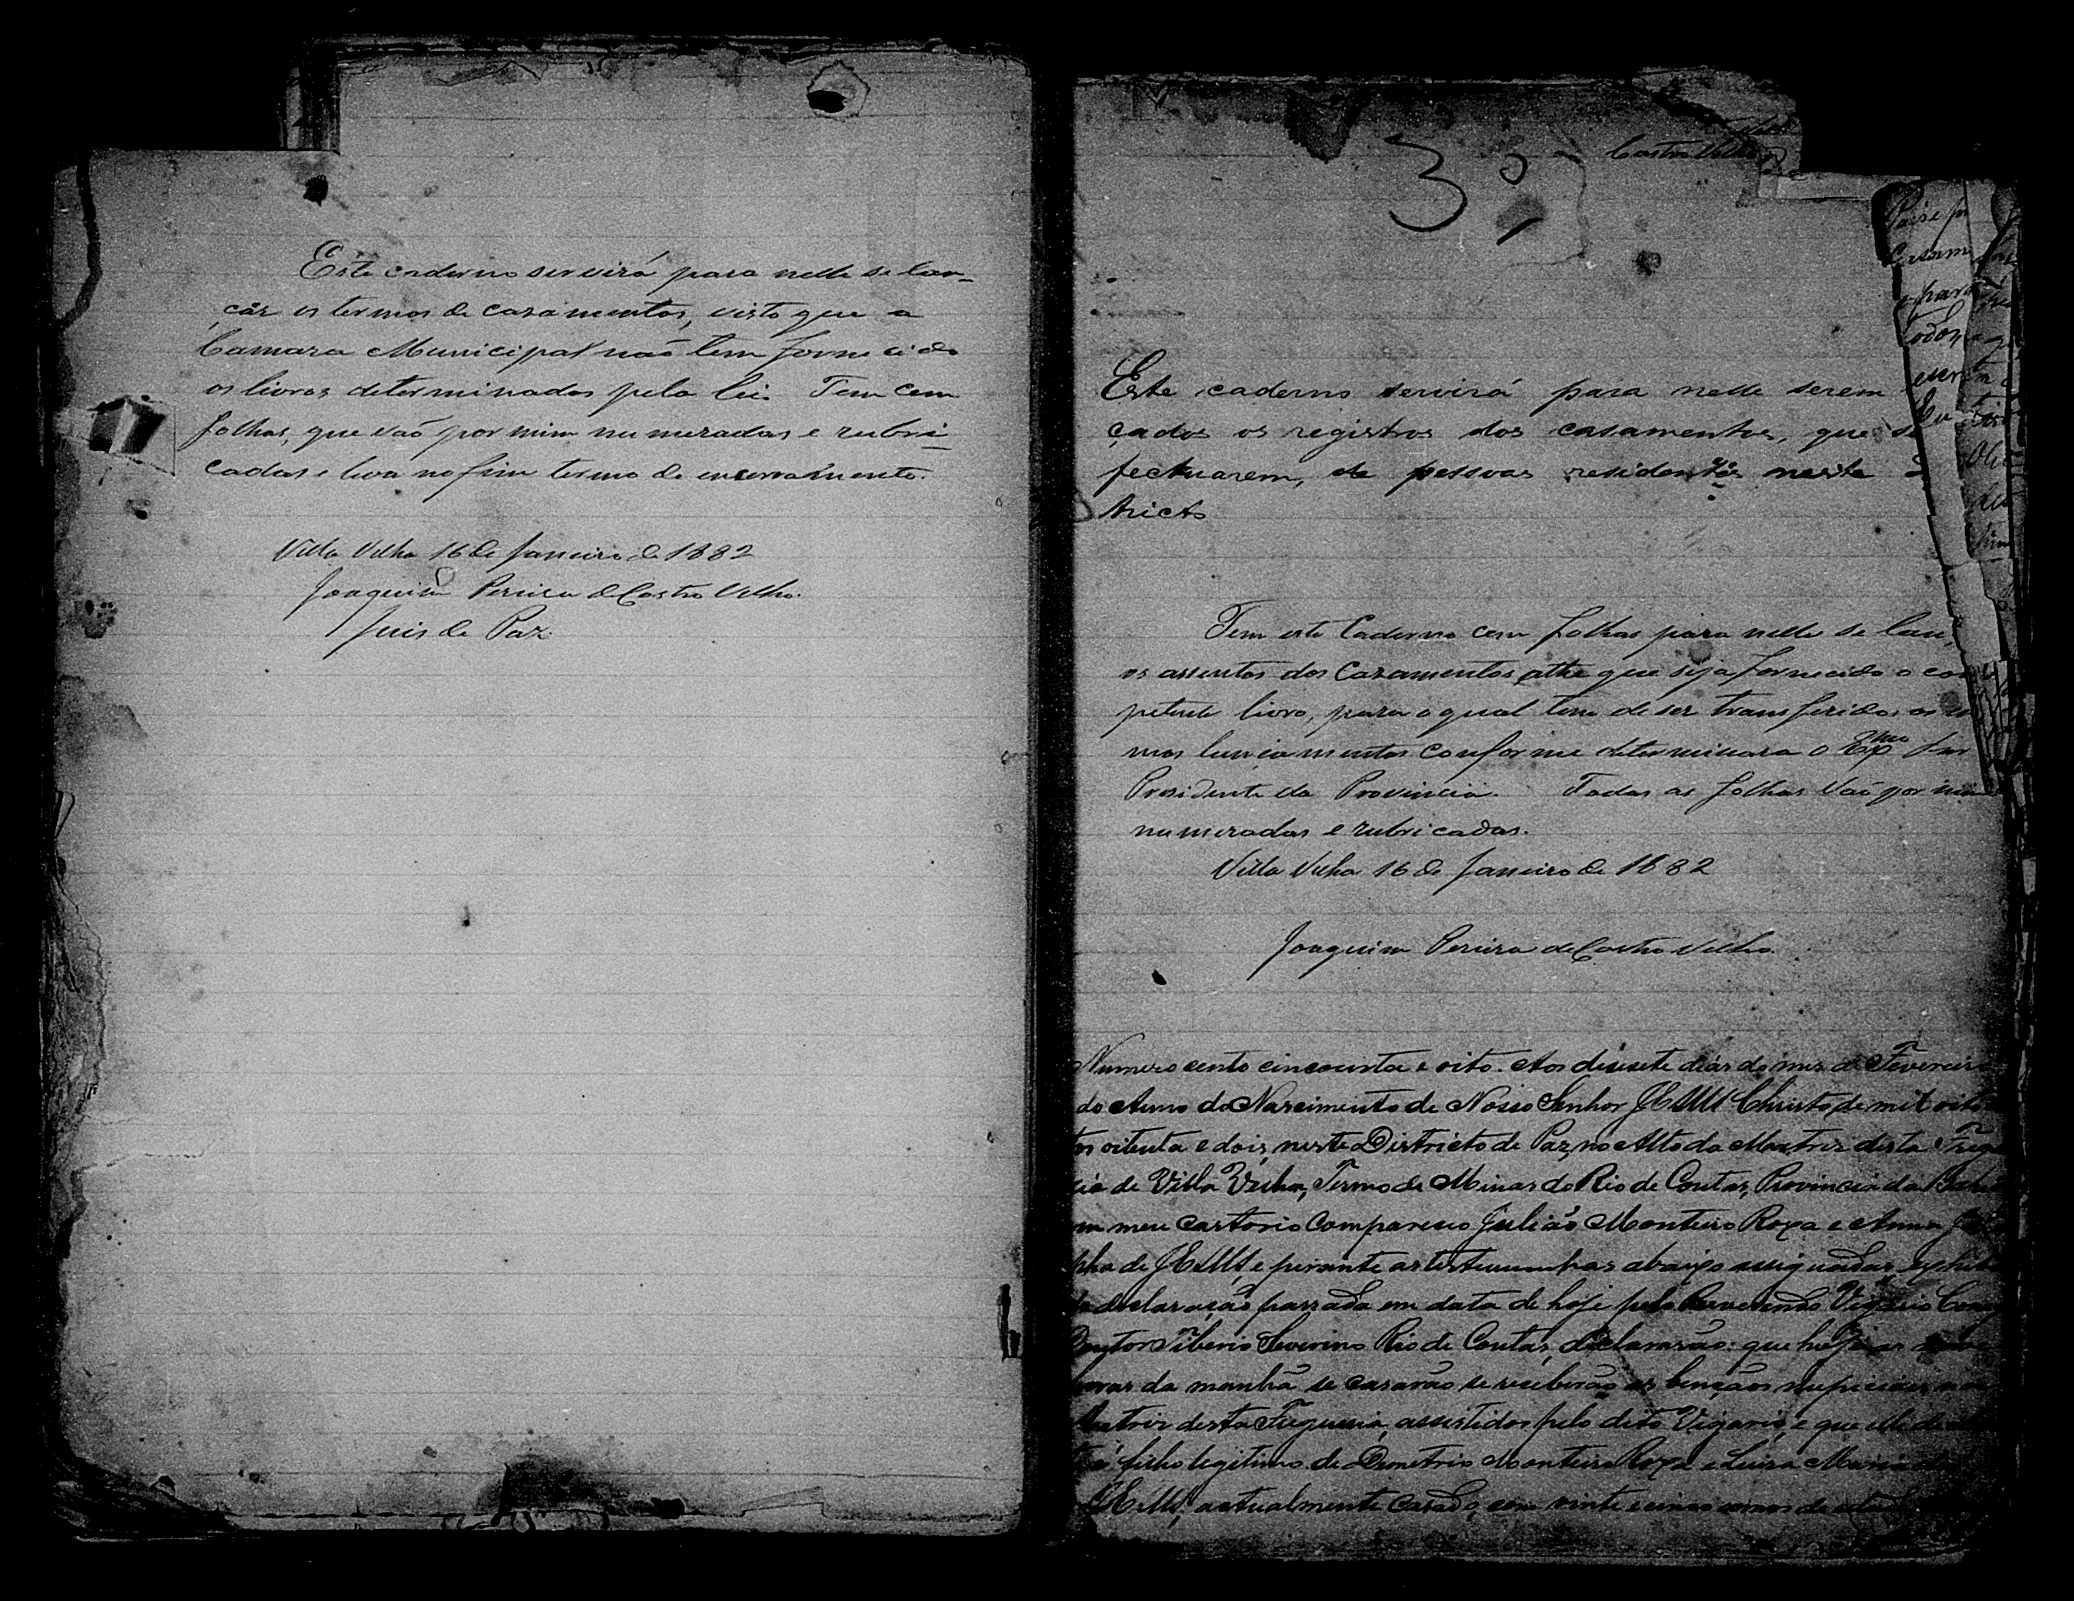 Este caderno servirá para nelle se lan-
çár os termos de casamentos, visto que a
Camara Municipal naõ tem fornecido
os livros determinados pela lei. Tem cem
folhas, que vaõ por mim numeradas e rubri
cadas e leva no fim termo de encerramento.
Villa Velha 16 de Janeiro de 1882
Joaquim Pereira de Castro Velho.
Juis de Paz.
3
Castro Velho
Este caderno servirá para nelle serem
çados os registros dos casamentos, que se
fectuarem, de pessoas residentes neste
tricto
Tem este Caderno cem folhas para nelle se lan
os assentos dos Casamentos athe que seja fornecido o com
petente livro, para o qual tem de ser transferidos os
mos lançamentos conforme determinara o Exmo Snr
Presidente da Provincia. Todas as folhas vaõ por mim
numeradas e rubricadas.
Villa Velha 16 de Janeiro de 1882
Joaquim Pereira de Castro Velho.
Numero cento cincoenta e oito. Aos desesete dias do mes de Fevereiro
do Anno do Nascimento de Nosso Senhor JESUS Christo de mil oito
tos oitenta e dois, neste Districto de Paz, no Alto da Matriz desta Fregue
cia de Villa Velha, Termo de Minas do Rio de Contas, Provincia da Bahia
em meu Cartorio Compareceo Julião Monteiro Roxa e Anna
pha de JESUS, e perante as testemunhas abaixo assignadas
declaração passada em data de hoje pelo Reverendo Vigario
Doutor Tiberio Severino Rio de Contas, declararão: que hoje as
horas da manhã se casarão e receberão as benções nupciaes na
Matriz desta Freguesia, assistidos pelo dito Vigario, e que elle
é filho legitimo de Demetrio Monteiro Roxa e Luisa Maria de
JESUS, actualmente Casado, com vinte e cinco annos de idade